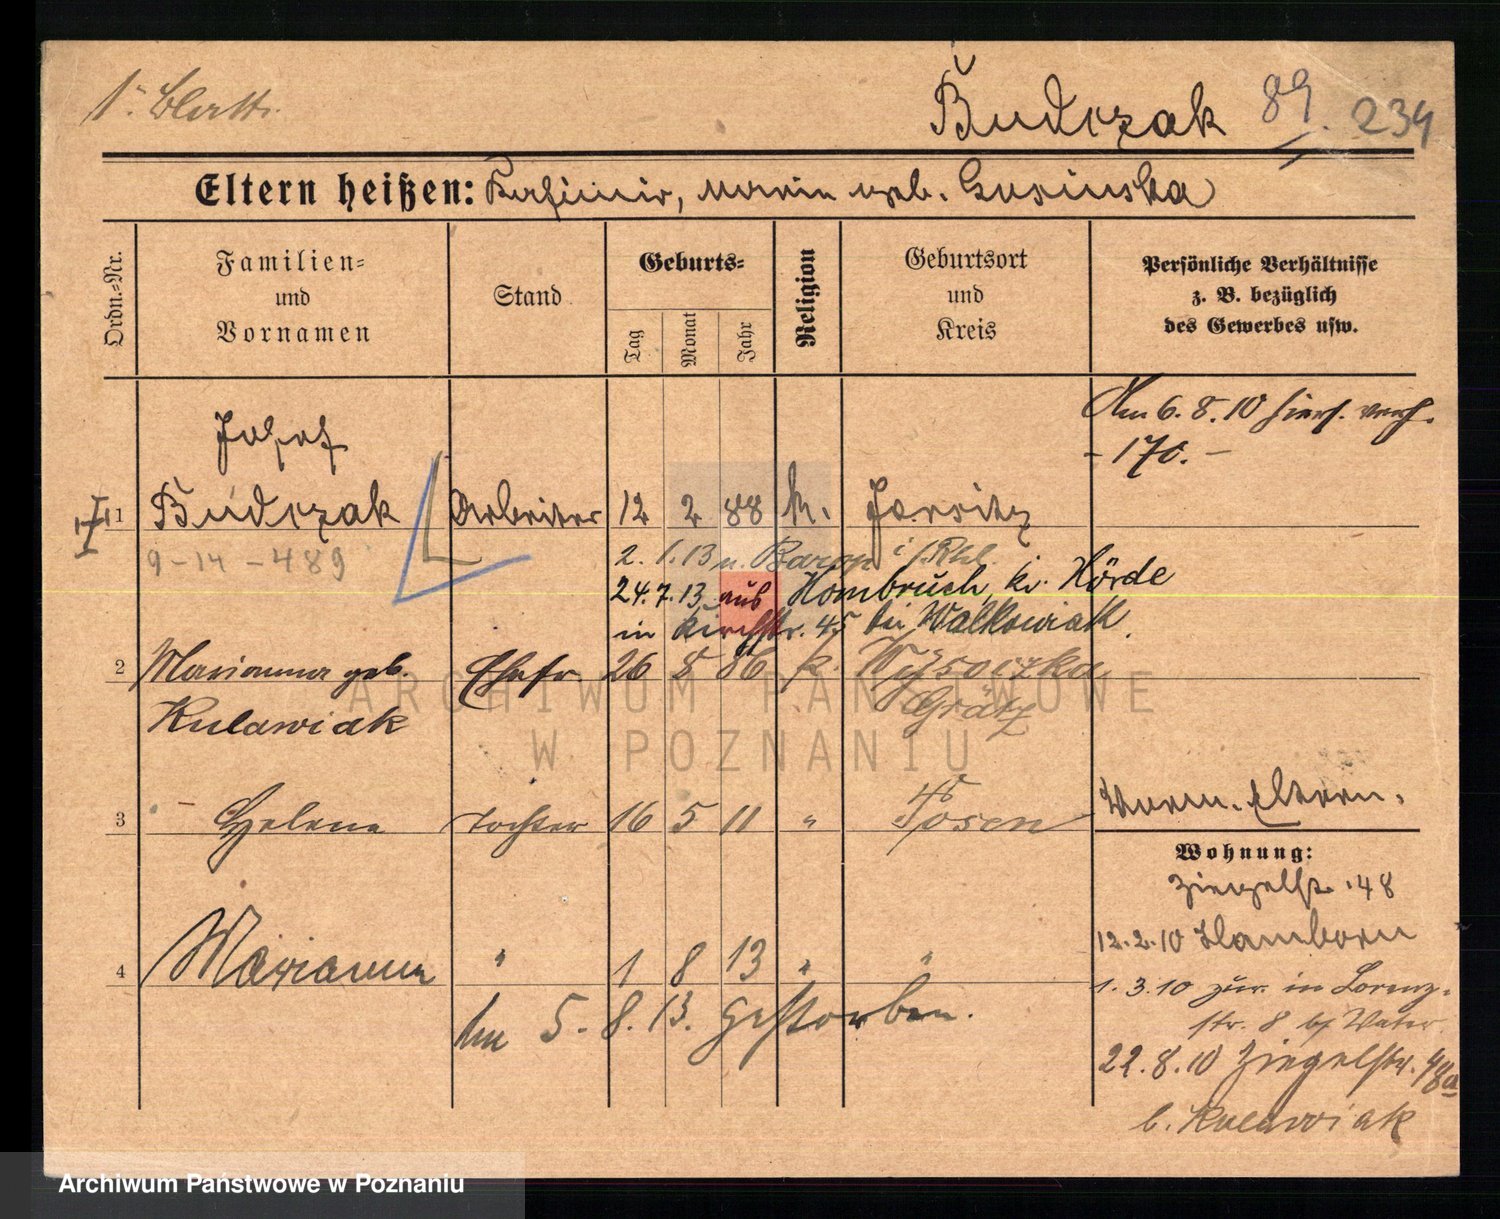 1. Blatt.
Budczak 89. 234
Eltern heißen: Kasimir, Maria geb. Gusinska
Ordn.-Nr.
Familien=
und
Vornamen
Stand
Geburts=
Tag
Monat
Jahr
Religion
Geburtsort
und
Kreis
Persönliche Verhältnisse
z. B. bezüglich
des Gewerbes usw.
Am 6.8.10 hiers. verh.
- 170. -
Josef
1 Budczak Arbeiter 12 2 88 k. Jersitz
9-14-489
2.1.13 n. Barop i/
24.7.13 aus Hombruch, kr. Hörde
in Kirchstr. 45 bei Walkowiak.
2 Marianna geb. Ehefr. 26 8 86 k. Wysoczka
Kulawiak Grätz
3 Helena Tochter 16 5 11 " Posen
Eltern.
Wohnung:
Ziegelstr. 48
12.2.10 Hamborn
4 Marianna " 1 8 13 " "
1.3.10 zur. in Lorenz-
str. 8 b/ Vater.
am 5.8.13. gestorben.
22.8.10 Ziegelstr. 48a
b. Kulawiak
ARCHIWUM PAŃSTWOWE
W POZNANIU
Archiwum Państwowe w Poznaniu